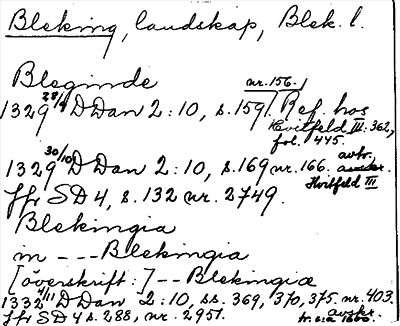 Bleking, landskap, Blek. l.
Bleginde
nr. 156.
1329 28/9 D Dan 2:10, s. 159. Ref. hos
Hvitfeld III: 362,
fol. 445.
1329 30/10 D Dan 2:10, s. 169 nr. 166. avtr.
Hvitfeld III
Jfr SD 4, s. 132 nr. 2749.
Blekingia
in --- Blekingia
[överskrift:] -- Blekingiæ
1332 4/11 D Dan 2:10, ss. 369, 370, 375 nr. 403.
Jfr SD 4 s. 288, nr. 2951. avskr.
fr. c:a 1600.